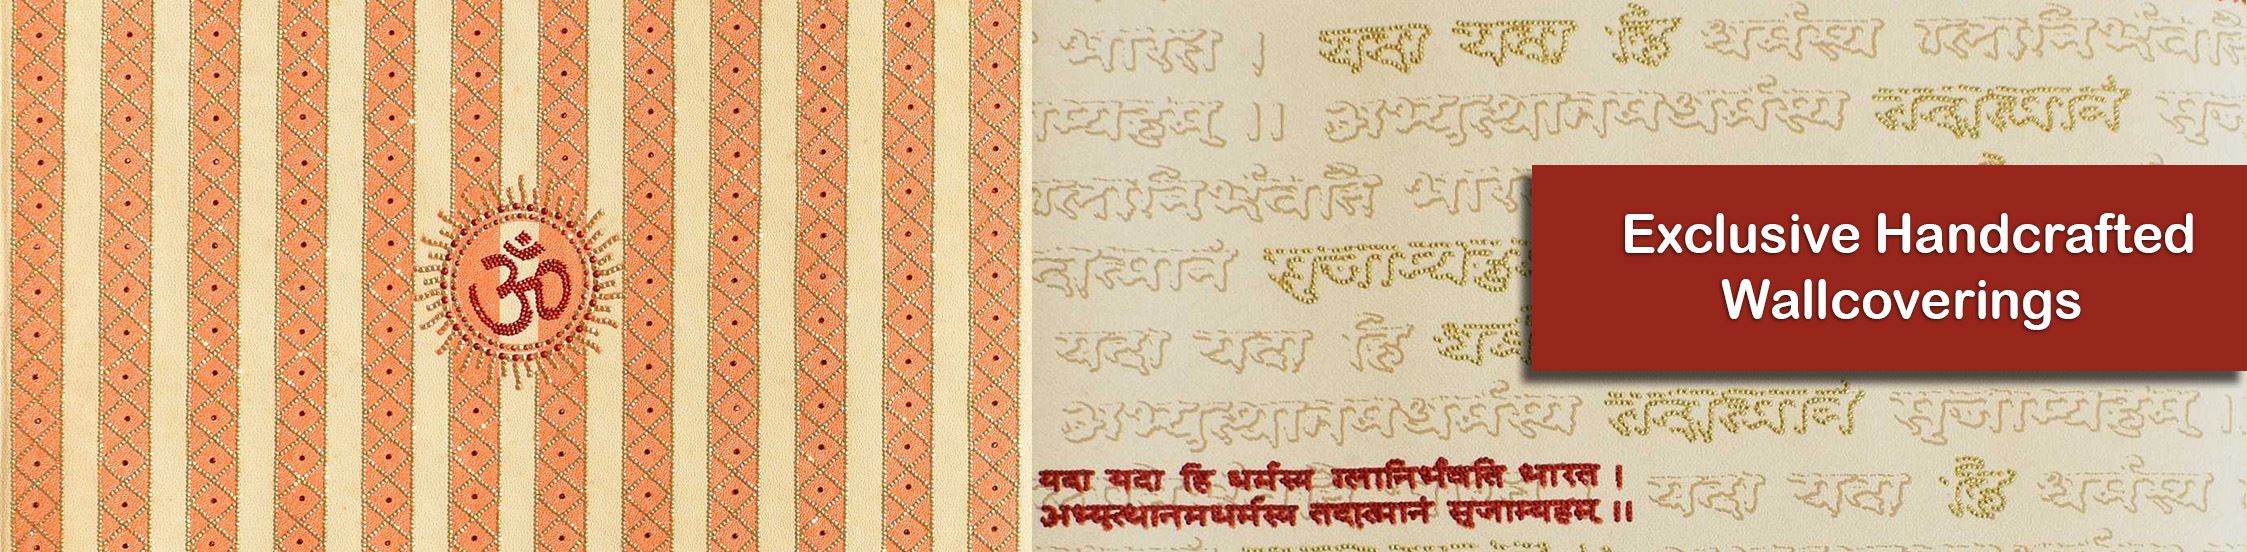 ॐ
भारत । यदा यदा हि धर्मस्य ग्लानिर्भवति
म्यहम् ।। अभ्युत्थानमधर्मस्य तदात्मानं सृज
ग्लानिर्भवति भार
दात्मानं सृजाम्यह
यदा यदा हि धर्म
अभ्युत्थानमधर्मस्य तदात्मानं सृजाम्यहम् ।।
यदा यदा हि धर्मस्य ग्लानिर्भवति भारत ।
अभ्युत्थानमधर्मस्य तदात्मानं सृजाम्यहम् ।।
यदा यदा हि धर्मस्य
Exclusive Handcrafted
Wallcoverings